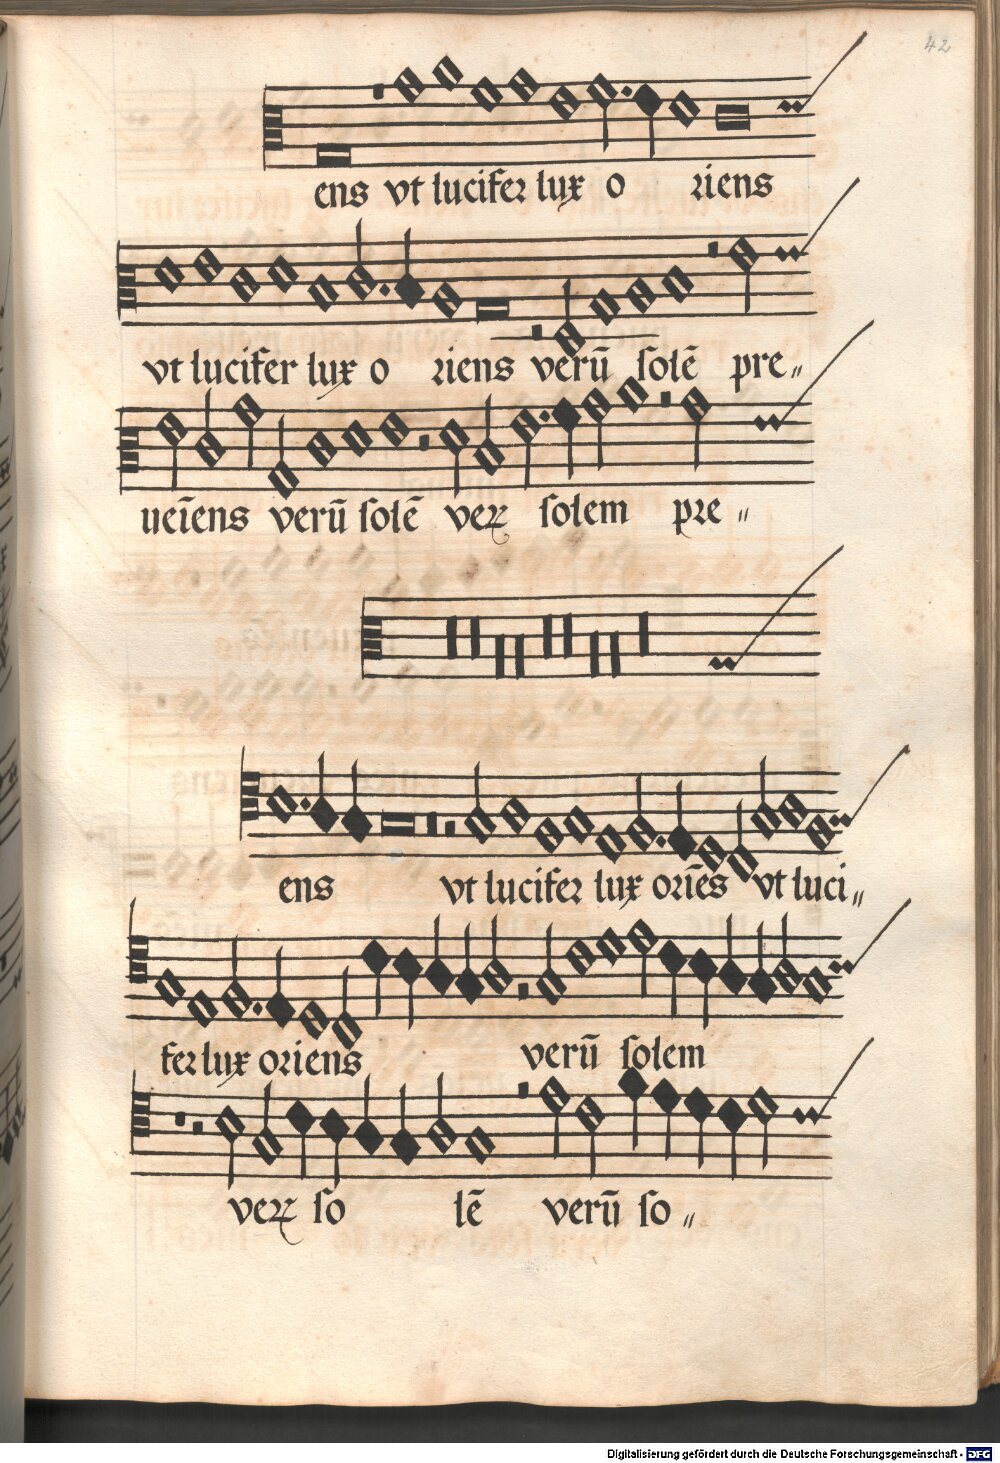 42
ens vt lucifer lux o riens
vt lucifer lux o riens verū solē pre„
ueīens verū solē veꝝ solem pre„
ens vt lucifer lux oriēs vt luci„
fer lux oriens verū solem
veꝝ so lē verū so„
Digitalisierung gefördert durch die Deutsche Forschungsgemeinschaft - DFG